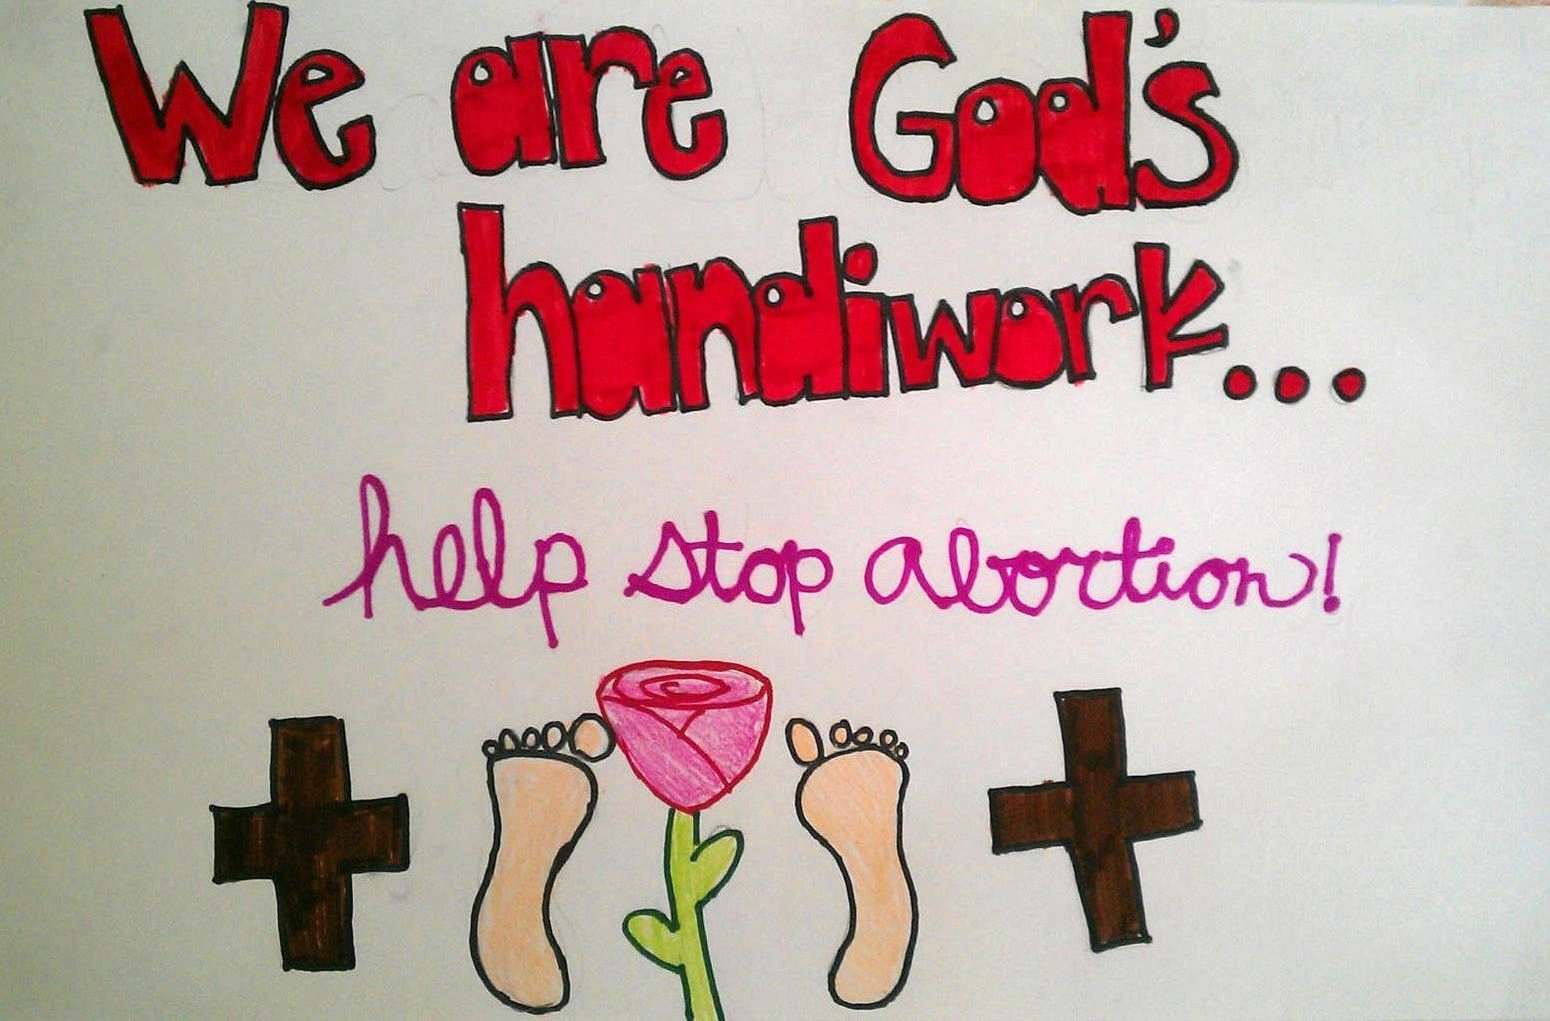 We are God's
handiwork...
help stop abortion!